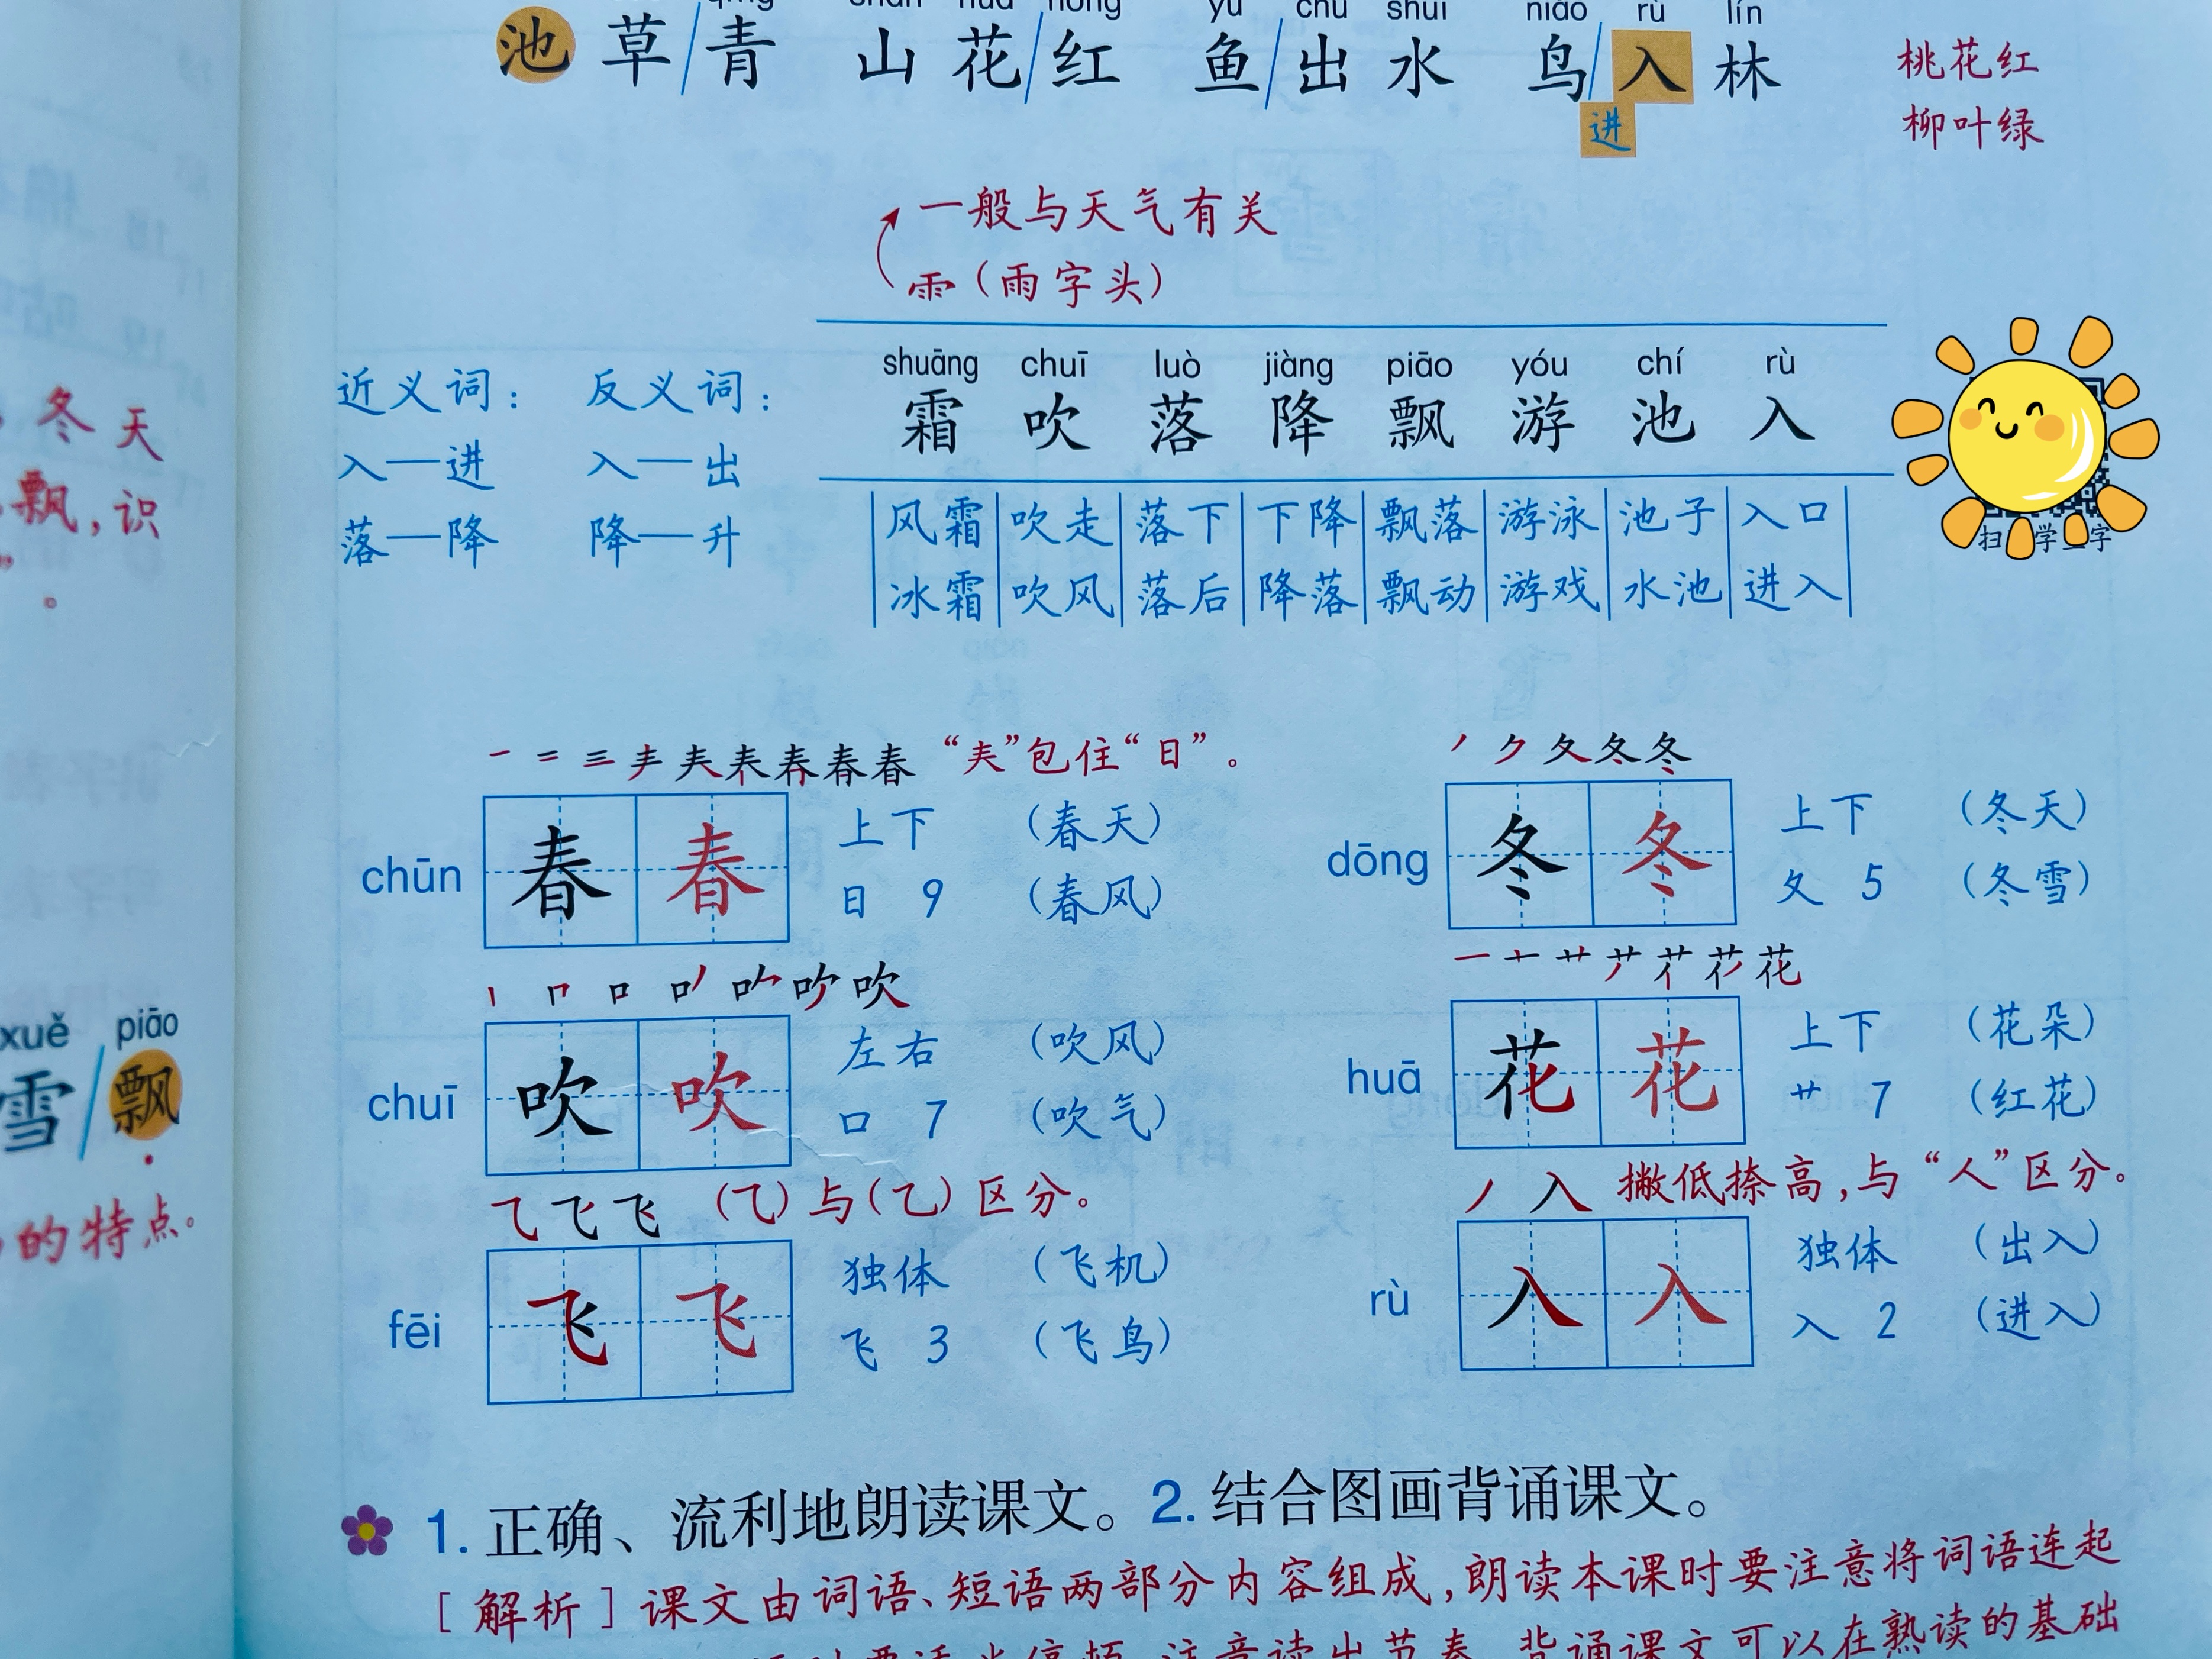 冬天
飘，识
”
。
xuě piāo
雪/飘
的特点。
shān huā hóng yú chū shuǐ niǎo rù lín
池草/青 山花/红 鱼/出水 鸟/入林
进
桃花红
柳叶绿
一般与天气有关
⻗（雨字头）
近义词： 反义词：
入—进 入—出
落—降 降—升
shuāng chuī luò jiàng piāo yóu chí rù
霜 吹 落 降 飘 游 池 入
风霜 吹走 落下 下降 飘落 游泳 池子 入口
冰霜 吹风 落后 降落 飘动 游戏 水池 进入
扫 学 字
“𡗗”包住“日”。
chūn 春 春 上下 （春天）
日 9 （春风）
dōng 冬 冬 上下 （冬天）
夂 5 （冬雪）
chuī 吹 吹 左右 （吹风）
口 7 （吹气）
huā 花 花 上下 （花朵）
艹 7 （红花）
（⺄）与（乙）区分。
fēi 飞 飞 独体 （飞机）
飞 3 （飞鸟）
撇低捺高，与“人”区分。
rù 入 入 独体 （出入）
入 2 （进入）
1. 正确、流利地朗读课文。2. 结合图画背诵课文。
［解析］课文由词语、短语两部分内容组成，朗读本课时要注意将词语连起
注意读出节奏 背诵课文可以在熟读的基础